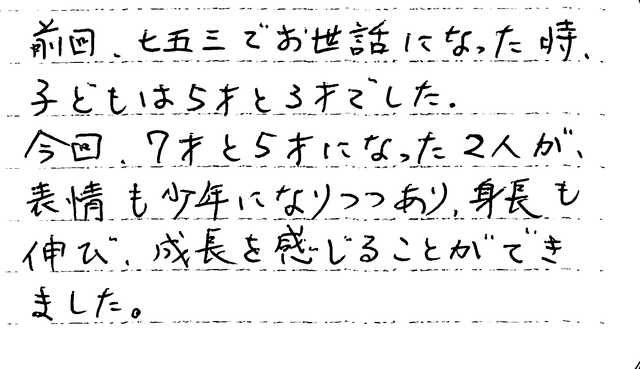 前回、七五三でお世話になった時、
子どもは5才と3才でした。
今回、7才と5才になった2人が、
表情も少年になりつつあり、身長も
伸び、成長を感じることができ
ました。